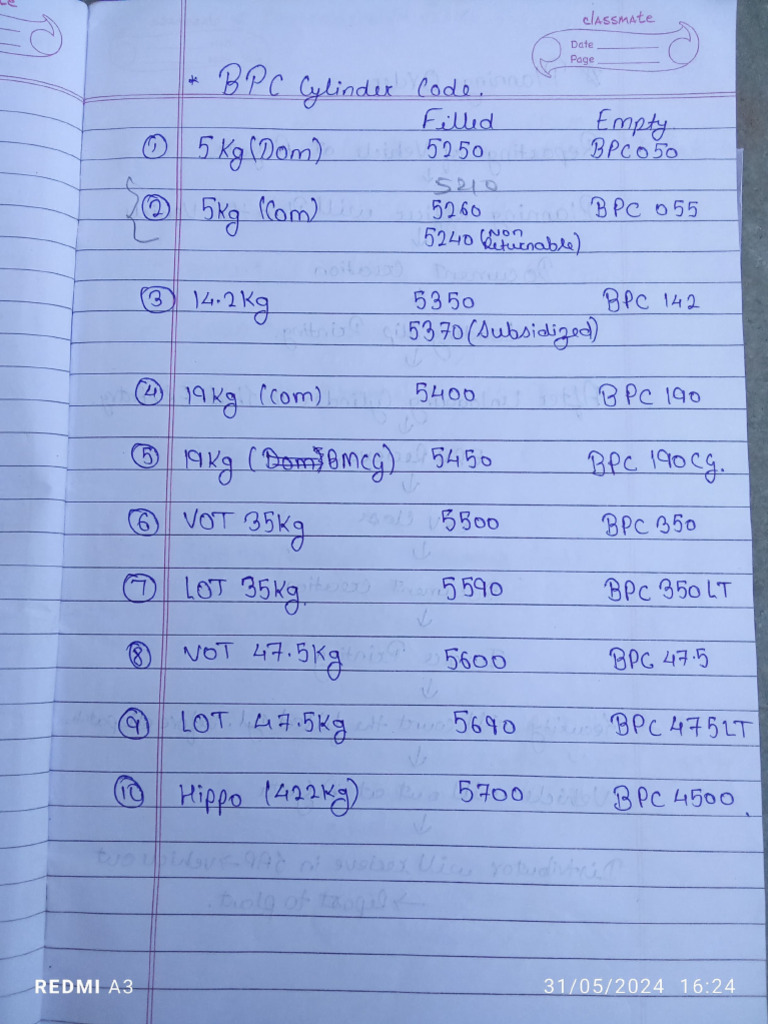 classmate
Date
Page
* BPC Cylinder Code.
Filled Empty
① 5Kg (Dom) 5250 BPC050
5210
② 5Kg (Com) 5260 BPC 055
5240 (Non Returnable)
③ 14.2Kg 5350 BPC 142
5370 (Subsidized)
④ 19Kg (Com) 5400 BPC 190
⑤ 19Kg (BMCG) 5450 BPC 190CG.
⑥ VOT 35Kg 5500 BPC 350
⑦ LOT 35Kg. 5590 BPC 350LT
⑧ VOT 47.5Kg 5600 BPC 47.5
⑨ LOT 47.5Kg 5690 BPC 475LT
⑩ Hippo (422Kg) 5700 BPC 4500.
REDMI A3 31/05/2024 16:24